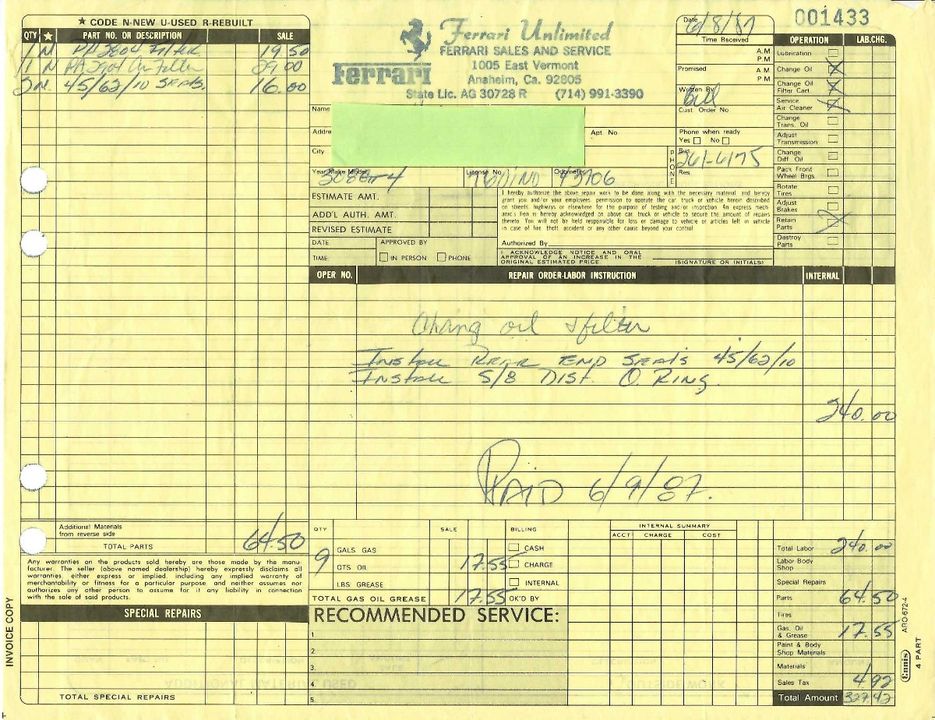 ★ CODE N-NEW U-USED R-REBUILT
QTY ★ PART NO. OR DESCRIPTION SALE
1 N PA 2804 Filter 19.50
1 N PA 2901 Air Filter 29.00
2 N. 45/62/10 SEALS. 16.00
Ferrari Unlimited
FERRARI SALES AND SERVICE
1005 East Vermont
Anaheim, Ca. 92805
State Lic. AG 30728 R (714) 991-3390
Ferrari
001433
Date 6/8/87
Time Received A.M. P.M.
Promised A.M. P.M.
Written By Bill
Cust. Order No.
Phone when ready
Yes No
PHONE
Bus. 261-6175
Res
Name
Address
Apt No
City
Year Make Model 308
License No
Odometer 43706
OPERATION LAB.CHG.
Lubrication
Change Oil
Change Oil Filter Cart.
Service Air Cleaner
Change Trans. Oil
Adjust Transmission
Change Diff Oil
Pack Front Wheel Brgs
Rotate Tires
Adjust Brakes
Retain Parts
Destroy Parts
ESTIMATE AMT.
ADD'L AUTH. AMT.
REVISED ESTIMATE
DATE APPROVED BY
TIME IN PERSON PHONE
I hereby authorize the above repair work to be done along with the necessary material and hereby
grant you and/or your employees permission to operate the car truck or vehicle herein described
on streets, highways or elsewhere for the purpose of testing and/or inspection. An express mech-
anics lien is hereby acknowledged on above car, truck or vehicle to secure the amount of repairs
thereto. You will not be held responsible for loss or damage to vehicle or articles left in vehicle
in case of fire theft accident or any other cause beyond your control.
Authorized By
I ACKNOWLEDGE NOTICE AND ORAL
APPROVAL OF AN INCREASE IN THE
ORIGINAL ESTIMATED PRICE.
(SIGNATURE OR INITIALS)
OPER NO. REPAIR ORDER-LABOR INSTRUCTION INTERNAL
Chang oil & filter
Install Rear END SEALS 45/62/10
INSTALL 5/8 DIST. O RING.
240.00
PAID 6/9/87.
Additional Materials from reverse side
TOTAL PARTS 64.50
Any warranties on the products sold hereby are those made by the manu-
facturer. The seller (above named dealership) hereby expressly disclaims all
warranties either express or implied, including any implied warranty of
merchantability or fitness for a particular purpose and neither assumes nor
authorizes any other person to assume for it any liability in connection
with the sale of said products.
SPECIAL REPAIRS
TOTAL SPECIAL REPAIRS
QTY SALE BILLING
GALS. GAS CASH
9 QTS OIL 17.55 CHARGE
LBS GREASE INTERNAL
TOTAL GAS OIL GREASE 17.55 OK'D BY
INTERNAL SUMMARY
ACCT CHARGE COST
RECOMMENDED SERVICE:
1
2.
3.
4.
5.
Total Labor 240.00
Labor Body Shop
Special Repairs
Parts 64.50
Tires
Gas, Oil & Grease 17.55
Paint & Body Shop Materials
Materials
Sales Tax 4.92
Total Amount
INVOICE COPY
Ennis ARO-672-4
4 PART